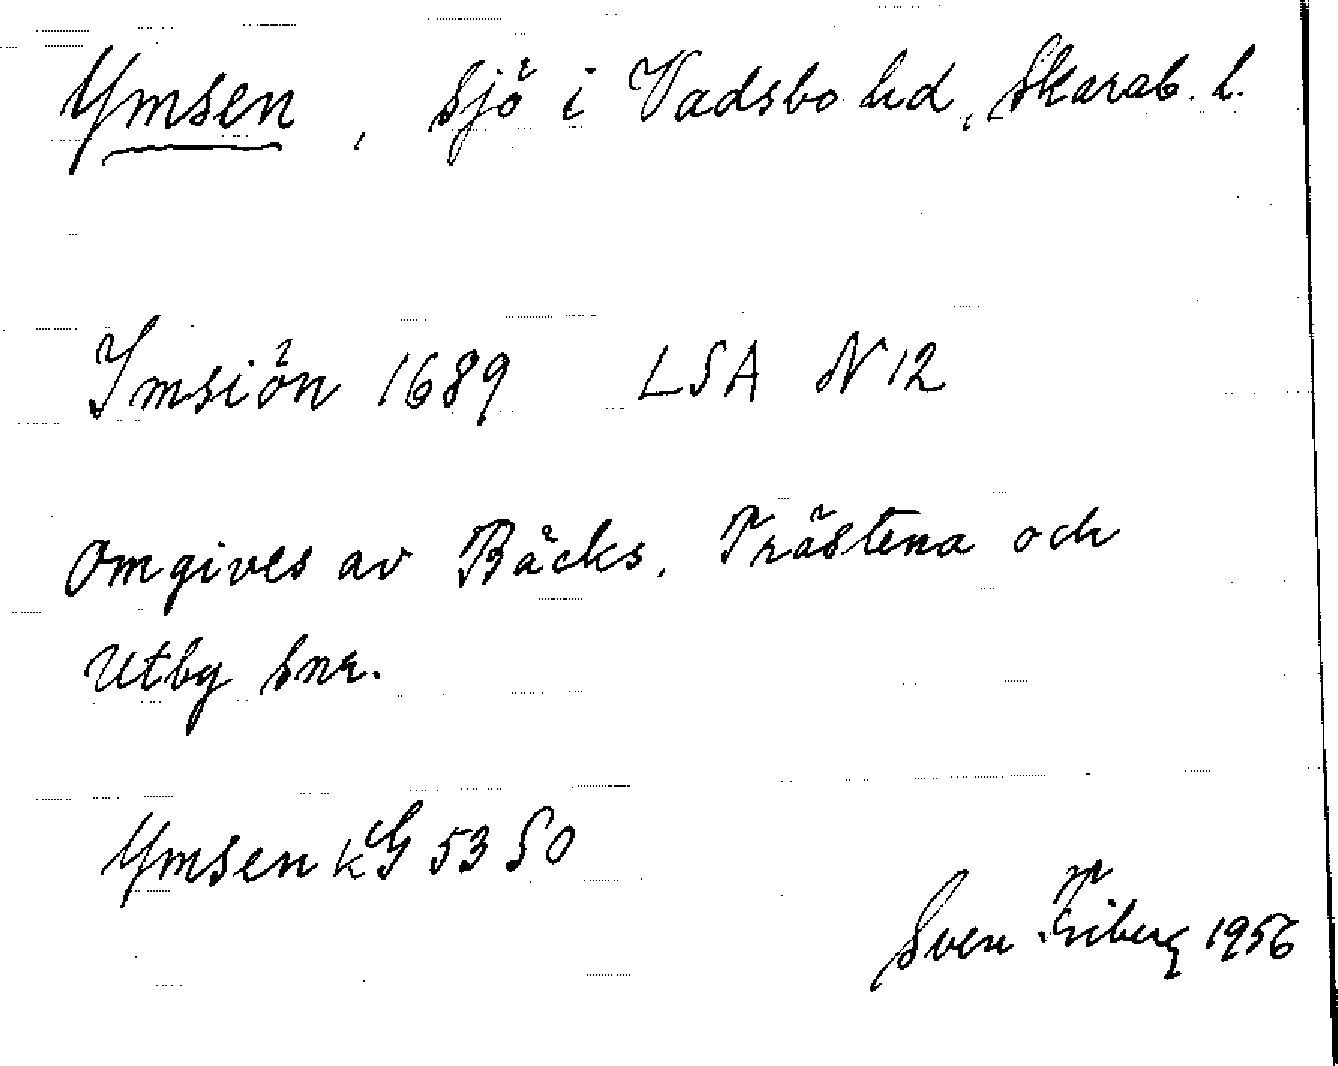 Ymsen, sjö i Vadsbo hd, Skarab. l.
Imsiön 1689 LSA N 12
Omgives av Bäcks, Trästena och
Utby snr.
Ymsen kG 53 SO
Sven Friberg 1956